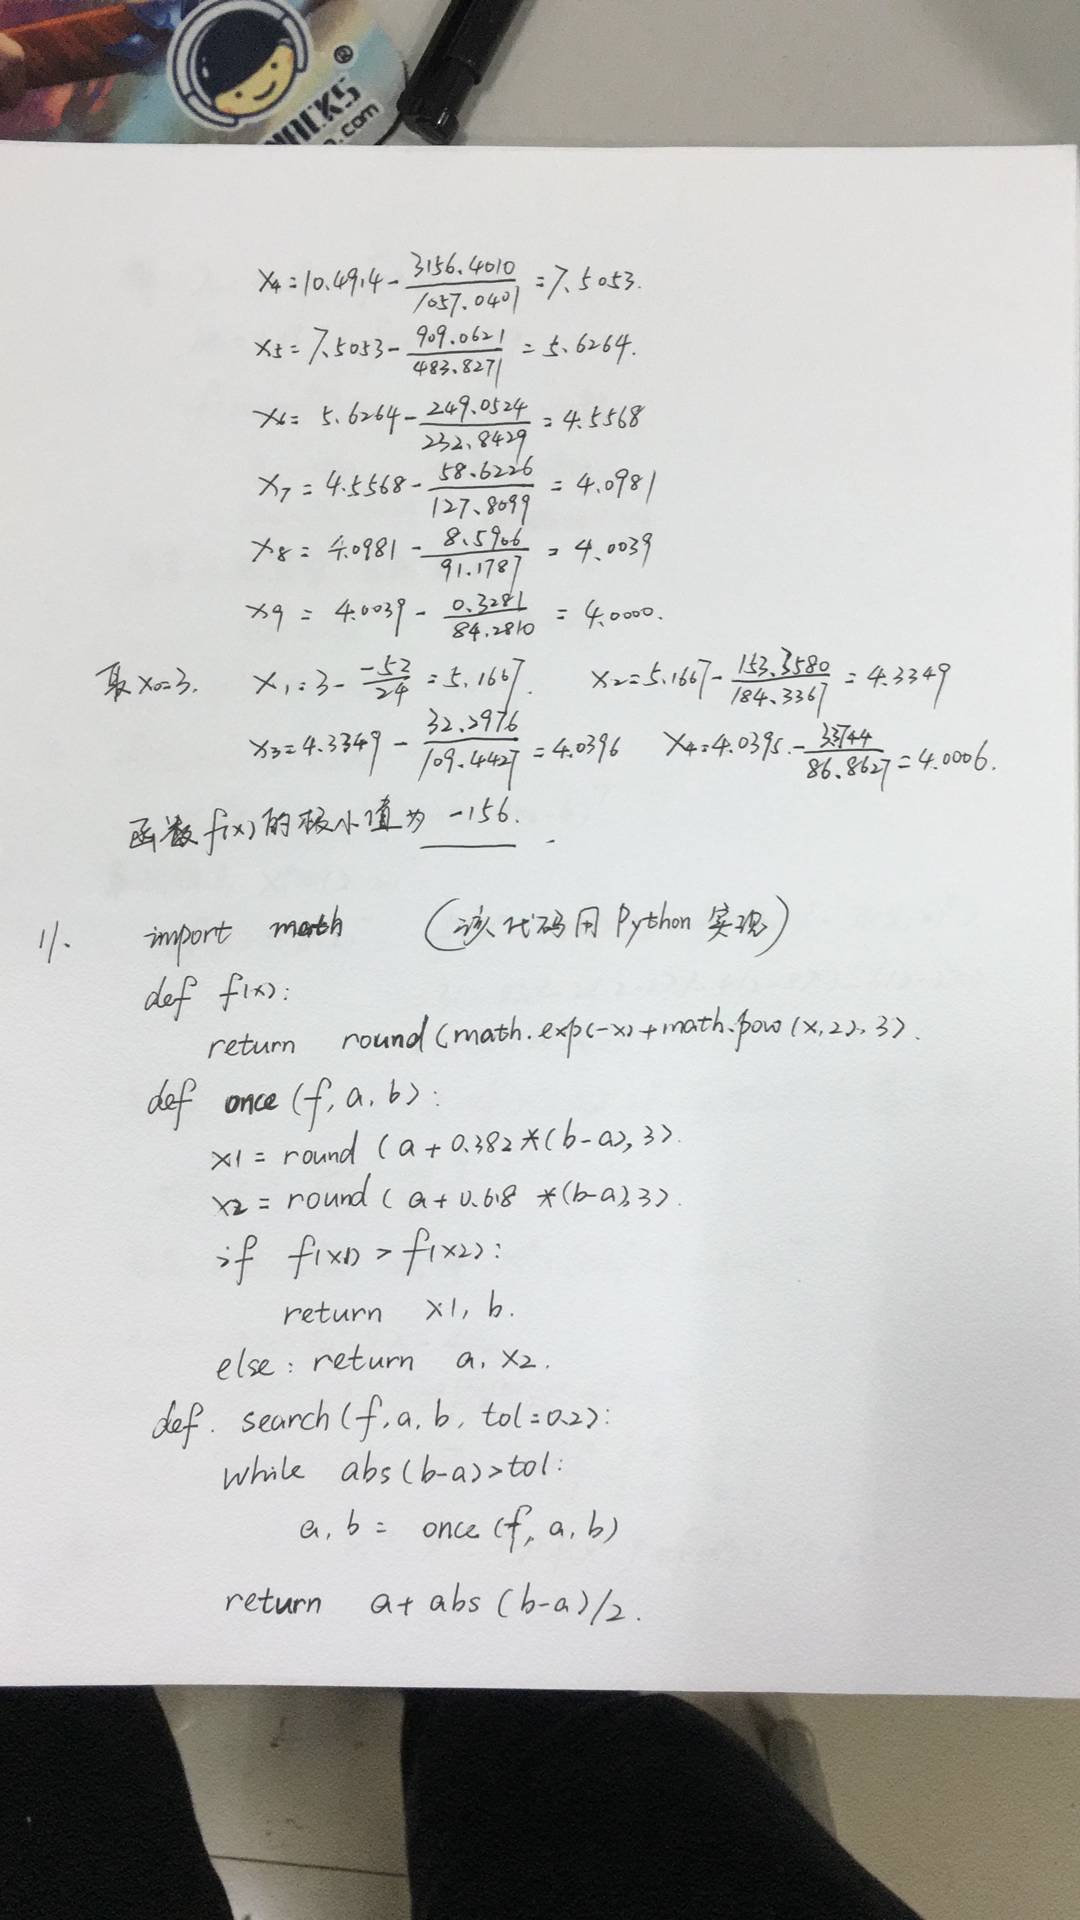 ®
OCKS
.com
x4=10.4914-3156.4010/1057.0401=7.5053.
x5=7.5053-909.0621/483.8271=5.6264.
x6=5.6264-249.0524/232.8429=4.5568
x7=4.5568-58.6226/127.8099=4.0981
x8=4.0981-8.5906/91.1787=4.0039
x9=4.0039-0.3281/84.2810=4.0000.
取x0=3. x1=3-(-52)/24=5.1667. x2=5.1667-153.3580/184.3367=4.3349
x3=4.3349-32.2976/109.4427=4.0396 x4=4.0395-33744/86.8627=4.0006.
函数f(x)的极小值为 -156.
11. import math (该代码用Python实现)
def f(x):
return round(math.exp(-x)+math.pow(x,2),3).
def once(f,a,b):
x1=round(a+0.382*(b-a),3).
x2=round(a+0.618*(b-a),3).
if f(x1)>f(x2):
return x1, b.
else: return a, x2.
def. search(f,a,b,tol=0.2):
while abs(b-a)>tol:
a,b= once(f,a,b)
return a+abs(b-a)/2.